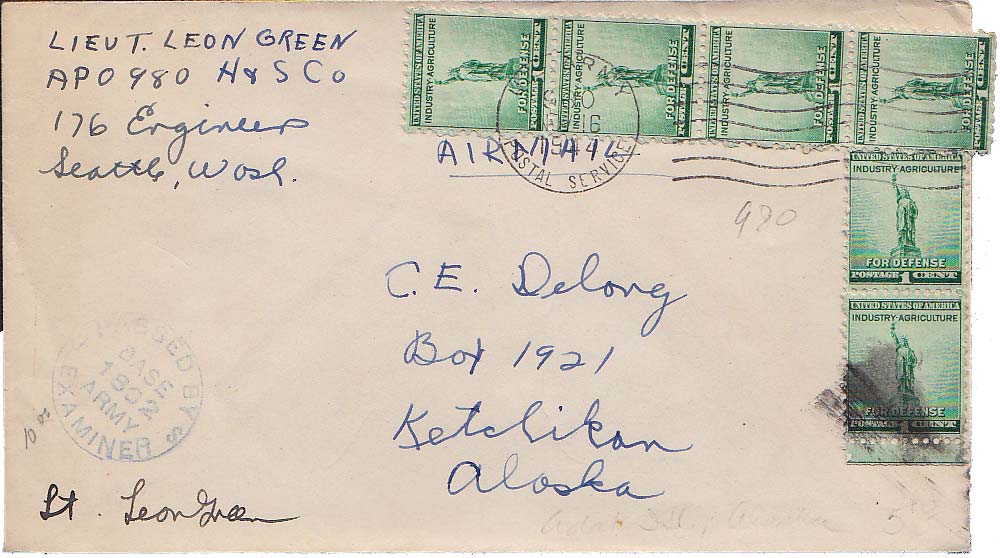 LIEUT. LEON GREEN
APO 980 H & S Co
176 Engineers
Seattle, Wash.
UNITED STATES OF AMERICA
INDUSTRY-AGRICULTURE
FOR DEFENSE
POSTAGE 1 CENT
UNITED STATES OF AMERICA
INDUSTRY-AGRICULTURE
FOR DEFENSE
POSTAGE 1 CENT
UNITED STATES OF AMERICA
INDUSTRY-AGRICULTURE
FOR DEFENSE
POSTAGE 1 CENT
UNITED STATES OF AMERICA
INDUSTRY-AGRICULTURE
FOR DEFENSE
POSTAGE 1 CENT
POSTAL SERVICE
16
1944
AIRMAIL
UNITED STATES OF AMERICA
INDUSTRY-AGRICULTURE
FOR DEFENSE
POSTAGE 1 CENT
980
C. E. Delong
Box 1921
Ketchikan
Alaska
UNITED STATES OF AMERICA
INDUSTRY-AGRICULTURE
FOR DEFENSE
POSTAGE 1 CENT
PASSED BY
BASE
1802
ARMY
EXAMINER
Lt. Leon Green